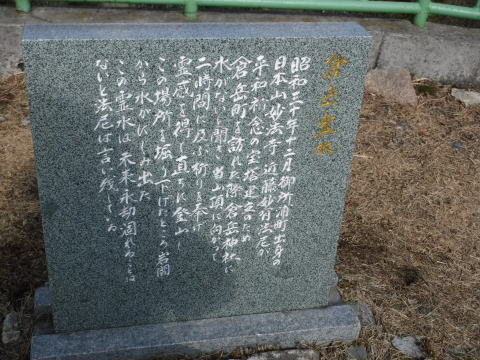 倉岳霊水
昭和六十年十二月御所浦町出身の
日本山妙法寺近藤妙行法尼が
平和祈念の宝塔建立のため
倉岳町を訪れた際倉岳神社に
水がないと聞き当山頂に向かって
二時間に及ぶ祈りを奉げ
霊感を得て直ちに登山し
この場所を堀り下げたところ岩間
から水がにじみ出た
この霊水は未来永劫涸れることは
ないと法尼は言い残している